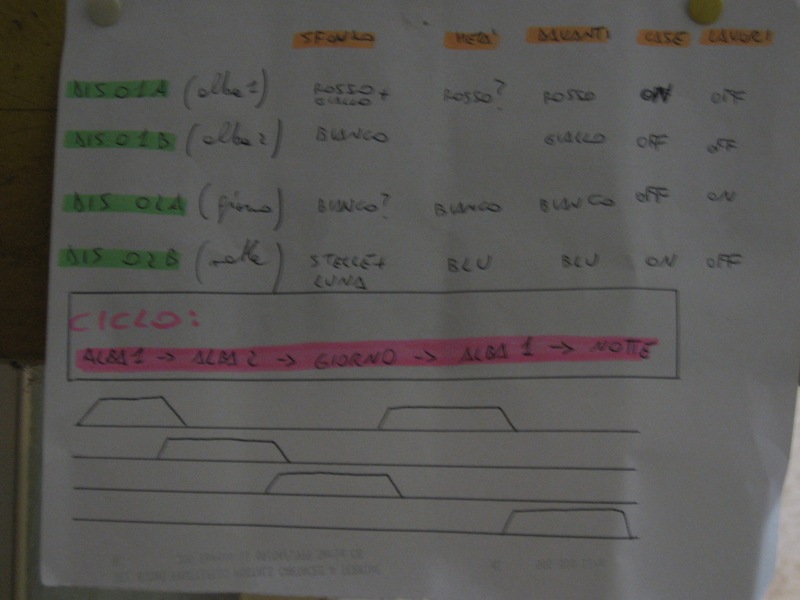 SFONDO META' DAVANTI CASE LAVORI
DIS 01A (alba 1) ROSSO GIALLO + ROSSO? ROSSO ON OFF
DIS 01B (alba 2) BIANCO GIALLO OFF OFF
DIS 02A (giorno) BIANCO? BIANCO BIANCO OFF ON
DIS 02B (notte) STELLE + LUNA BLU BLU ON OFF
CICLO:
ALBA 1 → ALBA 2 → GIORNO → ALBA 1 → NOTTE